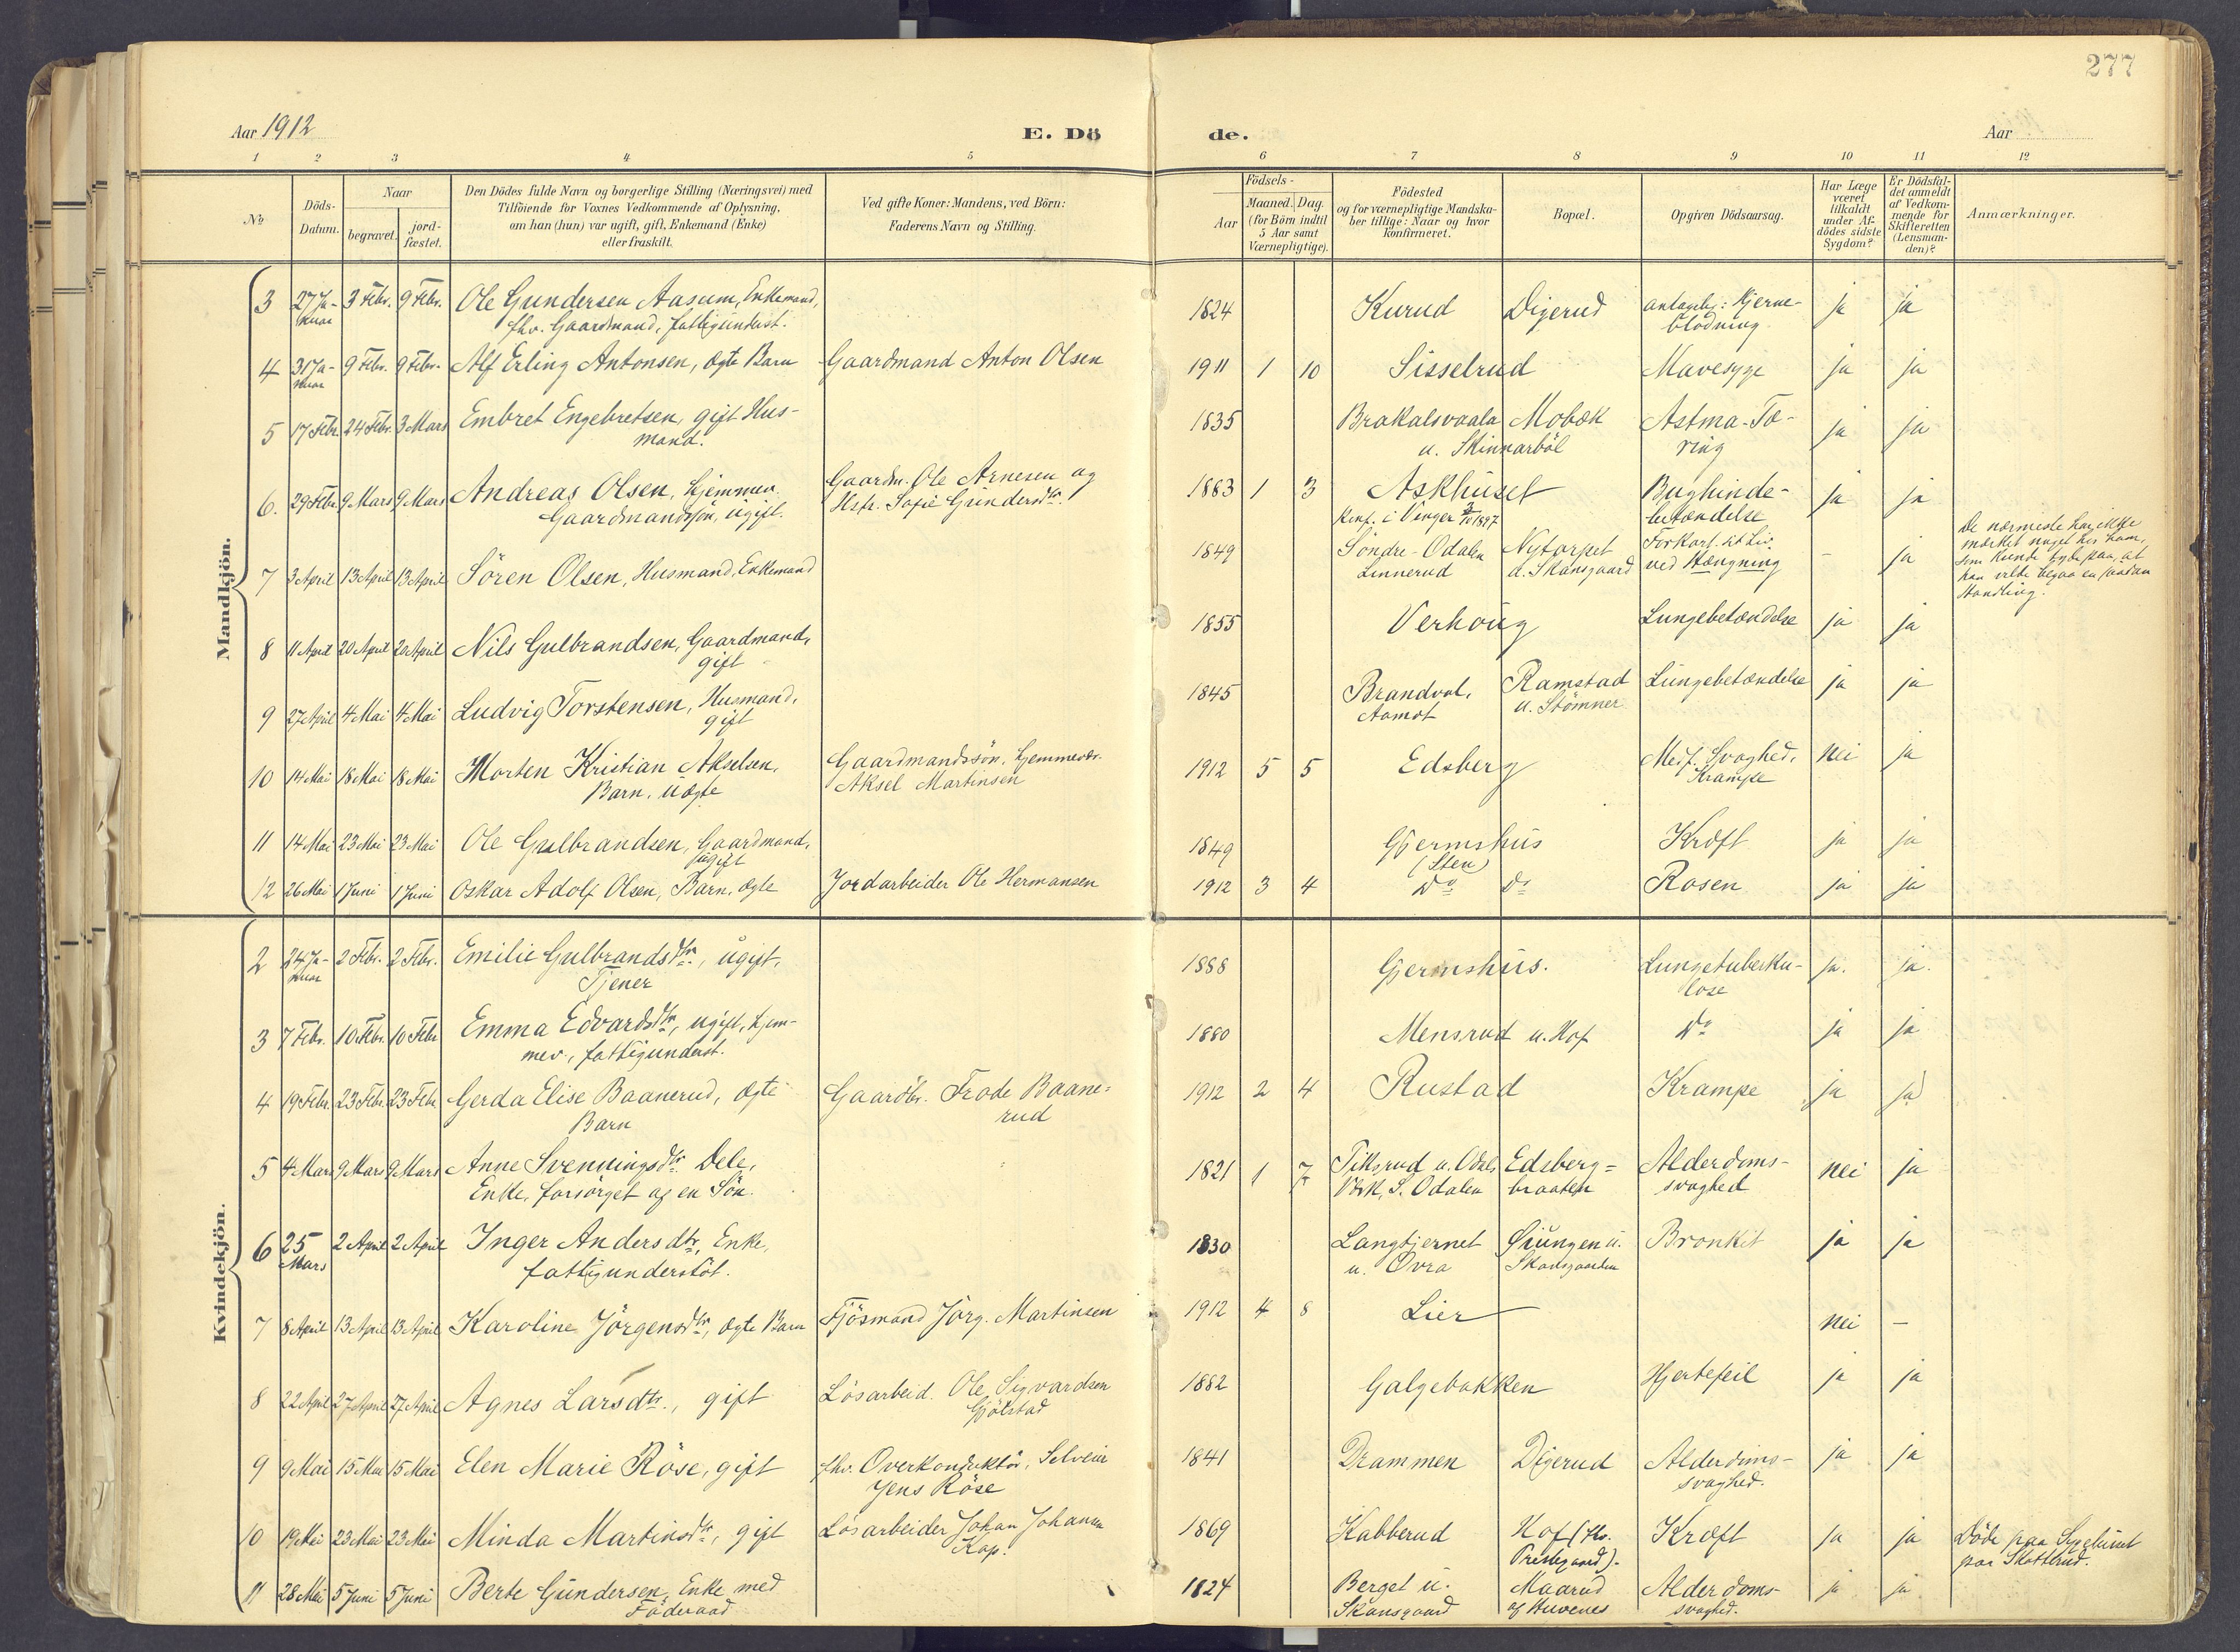 277
Aar 1912
E. Dö
de.
Aar
1 2 3 4 5 6 7 8 9 10 11 12
No
Döds-Datum.
Naar
begravet.
jord-fæstet.
Den Dödes fulde Navn og borgerlige Stilling (Næringsvei) med
Tilföiende for Voxnes Vedkommende af Oplysning,
om han (hun) var ugift, gift, Enkemand (Enke)
eller fraskilt.
Ved gifte Koner: Mandens, ved Börn:
Faderens Navn og Stilling.
Födsels-
Aar
Maaned. Dag.
(for Börn indtil
5 Aar samt
Værnepligtige).
Födested
og for værnepligtige Mandska-
ber tillige: Naar og hvor
konfirmeret.
Bopæl.
Opgiven Dödsaarsag.
Har Læge
været
tilkaldt
under Af-
dödes sidste
Sygdom?
Er Dödsfal-
det anmeldt
af Vedkom-
mende for
Skifteretten
(Lensman-
den)?
Anmærkninger.
Mandkjön.
3 27 Ja- 3 Febr. 9 Febr. Ole Gundersen Aasum, Enkemand, 1824 Kurud Digerud antagelig: Hjerne- ja ja
nuar fhv. Gaardmand, fattigunderst. blødning
4 31 Ja- 9 Febr. 9 Febr. Alf Erling Antonsen, ægte Barn Gaardmand Anton Olsen 1911 1 10 Sisselrud Mavesyge ja ja
nuar
5 17 Febr. 24 Febr. 3 Mars Embret Engebretsen, gift Hus- 1835 Brakalsvaala Mobæk Astma-Tæ- ja ja
mand. u. Skinnarböl ring
6. 29 Febr. 9 Mars 9 Mars Andreas Olsen, hjemmev. Gaardm. Ole Arnesen og 1883 1 3 Askhuset Bughinde- ja ja
Gaardmandssön, ugift. Hstr. Sofie Gundersdtr. Konf. i Vinger 1897 betændelse
7 3 April 13 April 13 April Sören Olsen, Husmand, Enkemand 1849 Söndre-Odalen Nytorpet Forkort. sit Liv - ja De nærmeste har ikke
Linnerud u. Skansgaard ved Hængning mærket noget hos ham,
som kunde tyde paa, at
han vilde begaa en saadan
Handling.
8 11 April 20 April 20 April Nils Gulbrandsen, Gaardmand, 1855 Verhoug Lungebetændelse ja ja
gift
9 27 April 4 Mai 4 Mai Ludvig Torstensen, Husmand, 1845 Brandval, Ramstad Lungebetændelse ja ja
gift Aamot u. Stömner
10 14 Mai 18 Mai 18 Mai Morten Kristian Akselsen, Gaardmandssön, hjemmevær. 1912 5 5 Edsberg Medf. Svaghed, nei ja
Barn, uægte Aksel Martinsen Krampe
11 14 Mai 23 Mai 23 Mai Ole Gulbrandsen, Gaardmand, 1849 Gjermshus Kræft ja ja
ugift (Sten)
12 26 Mai 1 Juni 1 Juni Oskar Adolf Olsen, Barn, ægte Jordarbeider Ole Hermansen 1912 3 4 Do do Rosen ja ja
Kvindekjön.
2 24 Ja- 2 Febr. 2 Febr. Emilie Gulbrandsdtr., ugift, 1888 Gjermshus. Lungetuberku- ja. ja.
nuar Tjener lose
3 7 Febr. 10 Febr. 10 Febr Emma Edvardsdtr., ugift, hjem- 1880 Mensrud u. Hof Do ja ja
mev., fattigunderst.
4 19 Febr. 23 Febr. 23 Febr Gerda Elise Baanerud, ægte Gaardbr. Frode Baane- 1912 2 4 Rustad Krampe ja ja
Barn rud
5 4 Mars 9 Mars 9 Mars Anne Svenningsdtr. Dele, 1821 1 7 Tiksrud u. Odals Edsberg- Alderdoms- nei ja
Enke, forsörget af en Sön. Værk, S. Odalen braaten svaghed
6 25 2 April 2 April Inger Andersdtr., Enke, 1830 Langtjernet Øiungen u. Bronkit ja ja
Mars fattigunderstöt. u. Ovra Skansgaarden
7 8 April 13 April 13 April Karoline Jörgensdtr., ægte Barn Fjösmand Jörg. Martinsen 1912 4 8 Lier nei -
8 22 April 27 April 27 April Agnes Larsdtr., gift Lösarbeid. Ole Sigvardsen 1882 Galgebakken Hjertefeil ja ja
Gjölstad
9 9 Mai 15 Mai 15 Mai Elen Marie Röse, gift fhv. Overkonduktör, Selveier 1841 Drammen Digerud Alderdoms- ja ja
Jens Röse svaghed.
10 19 Mai 23 Mai 23 Mai Minda Martinsdtr., gift Lösarbeider Johan Johansen 1869 Kabberud Hof (fhv. Kræft ja ja Döde paa Sygehuset
Kap. Prestegaard). paa Skotterud.
11 28 Mai 5 Juni 5 Juni Berte Gundersen, Enke med 1824 Berget u. Maarud Alderdoms- ja ja
Föderaad Skansgaard af Huvenes svaghed.